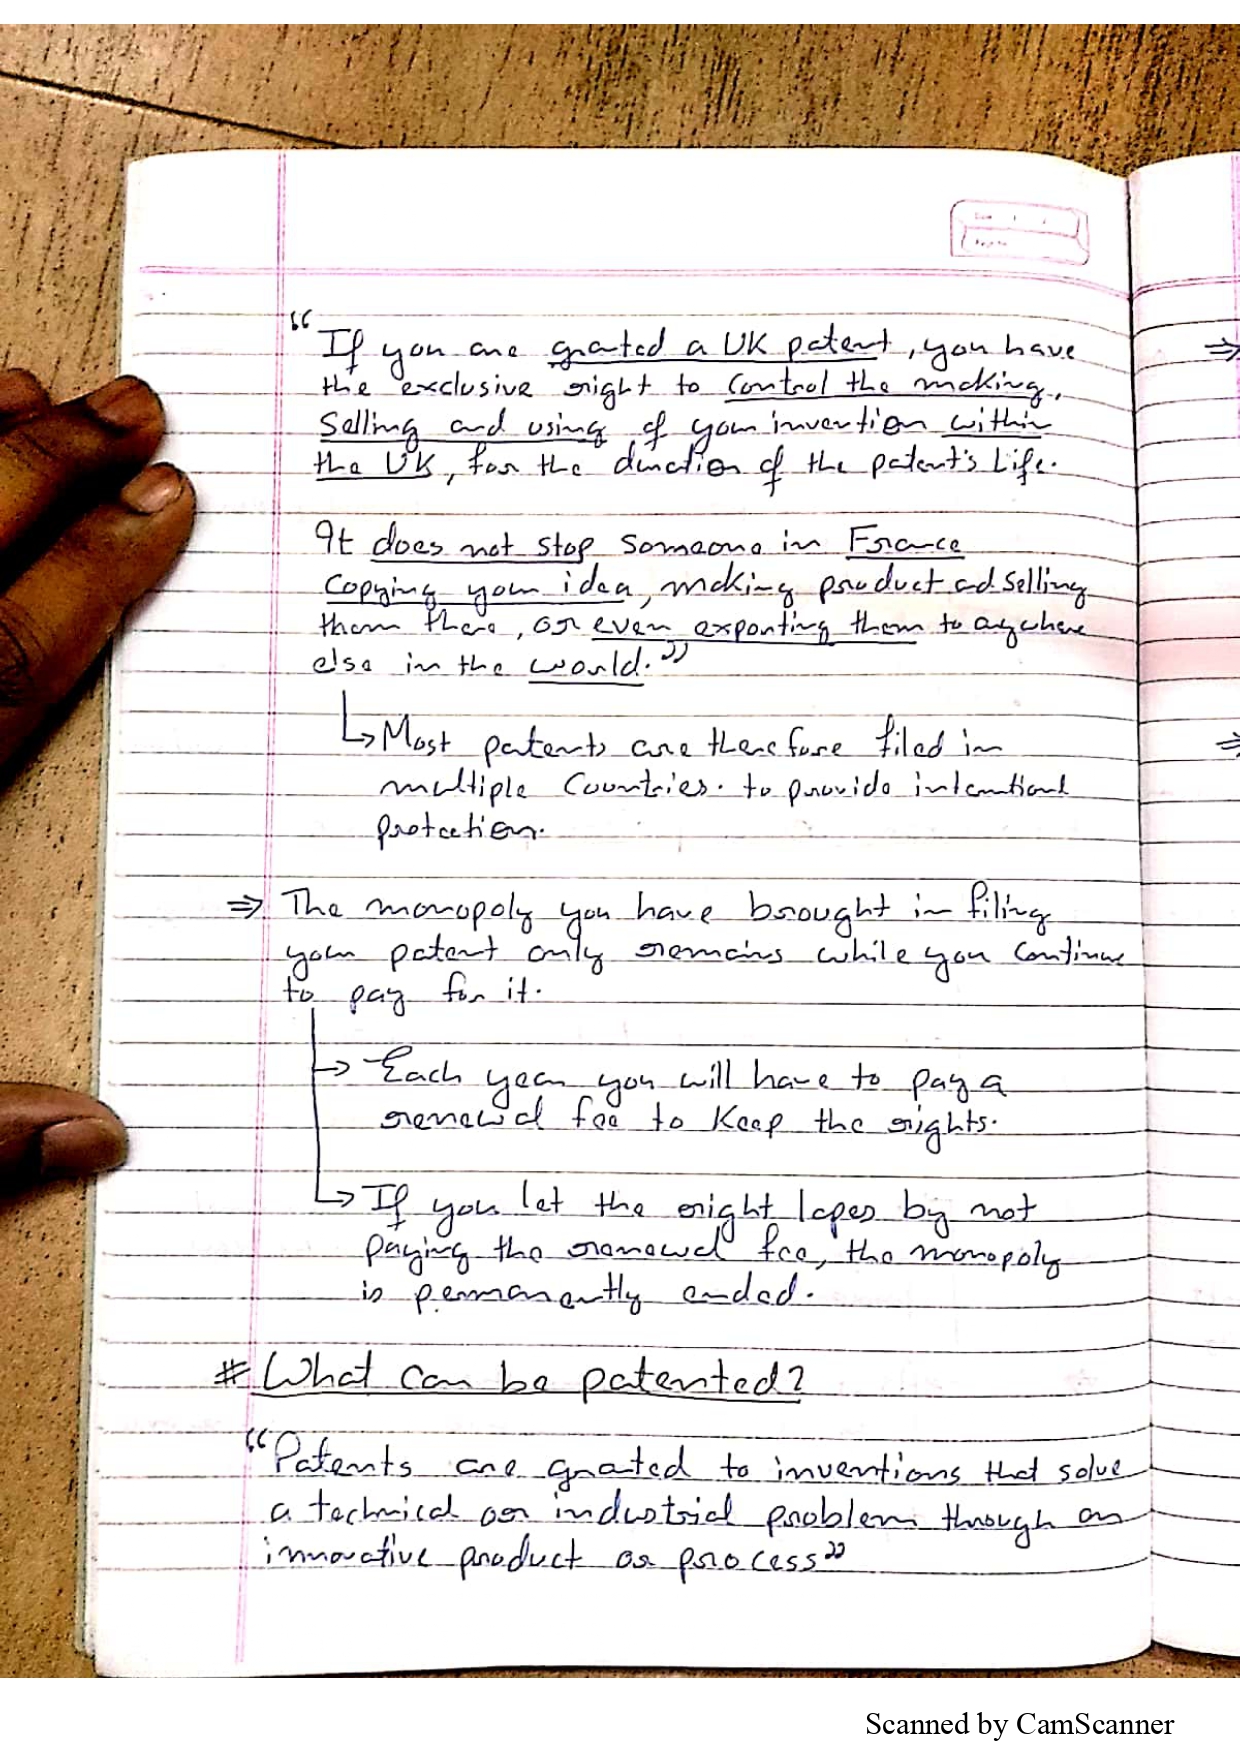 “If you are granted a UK patent, you have
the exclusive right to control the making,
Selling and using of your invention within
the UK, for the duration of the patent's Life.
It does not stop someone in France
Copying your idea, making product and selling
them there, or even exporting them to anywhere
else in the world.”
↳ Most patents are therefore filed in
multiple Countries. to provide intentional
protection.
⇒ The monopoly you have brought in filing
your patent only remains while you continue
to pay for it.
→ Each year you will have to pay a
renewal fee to Keep the rights.
↳ If you let the right lapes by not
paying the renewal fee, the monopoly
is permanently ended.
# What can be patented?
“Patents are granted to inventions that solve
a technical or industrial problem through an
innovative product or process”
Scanned by CamScanner